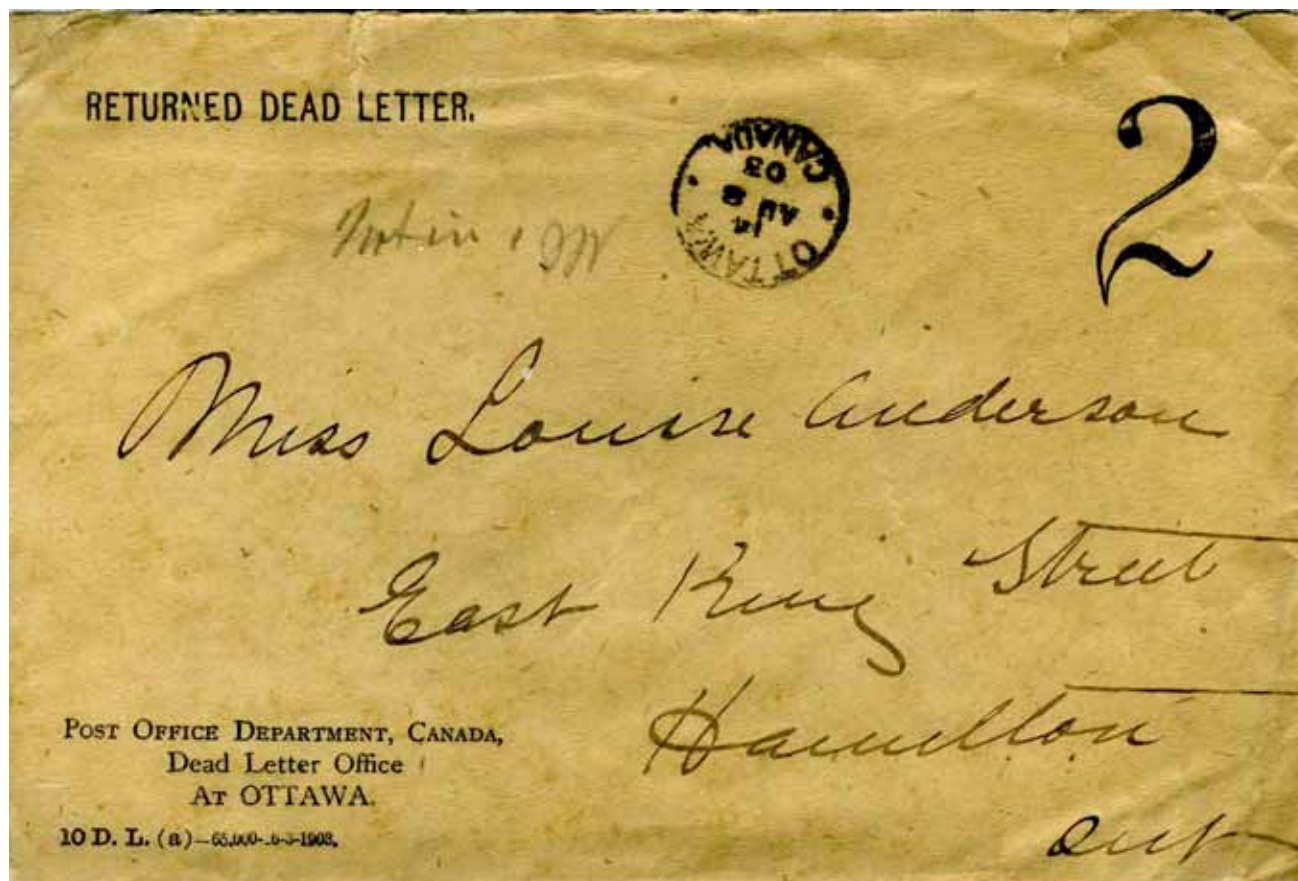 RETURNED DEAD LETTER.
2
OTTAWA
14
AU 8
03
CANADA
Not in
Miss Louise Anderson
East King Street
Hamilton
Ont
POST OFFICE DEPARTMENT, CANADA,
Dead Letter Office
AT OTTAWA.
10 D. L. (a)